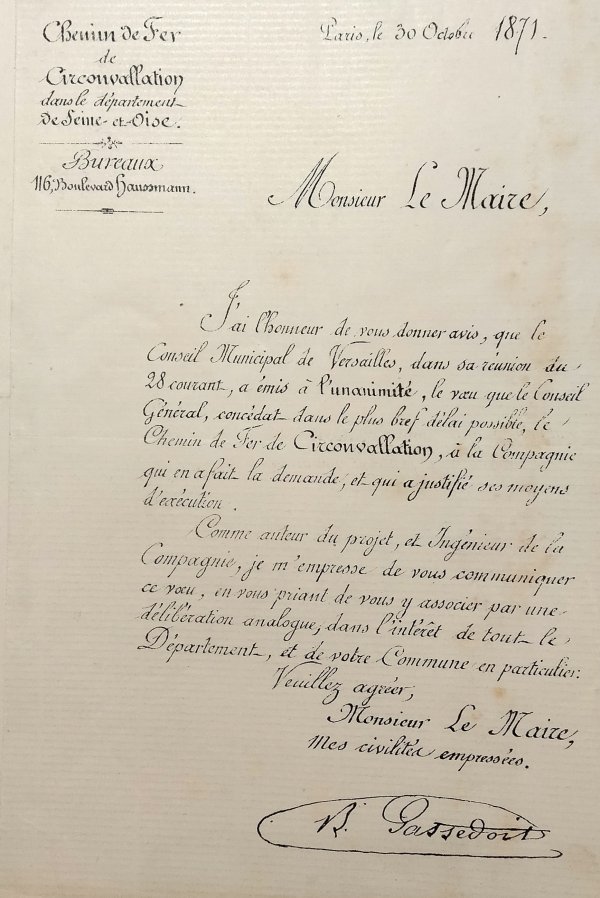 Chemin de Fer
de
Circonvallation
dans le département
de Seine-et-Oise.
Bureaux
116, Boulevard Haussmann.
Paris, le 30 Octobre 1871.
Monsieur Le Maire,
J'ai l'honneur de vous donner avis, que le
Conseil Municipal de Versailles, dans sa réunion du
28 courant, a émis à l'unanimité, le vœu que le Conseil
Général, concédat dans le plus bref délai possible, le
Chemin de Fer de Circonvallation, à la Compagnie
qui en a fait la demande, et qui a justifié ses moyens
d'exécution.
Comme auteur du projet, et Ingénieur de la
Compagnie, je m'empresse de vous communiquer
ce vœu, en vous priant de vous y associer par une
délibération analogue, dans l'intérêt de tout le
Département, et de votre Commune en particulier.
Veuillez agréer,
Monsieur Le Maire,
Mes civilités empressées.
B. Gassedoit